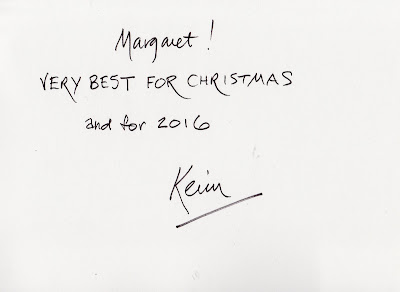 Margaret!
VERY BEST FOR CHRISTMAS
and for 2016
Kevin